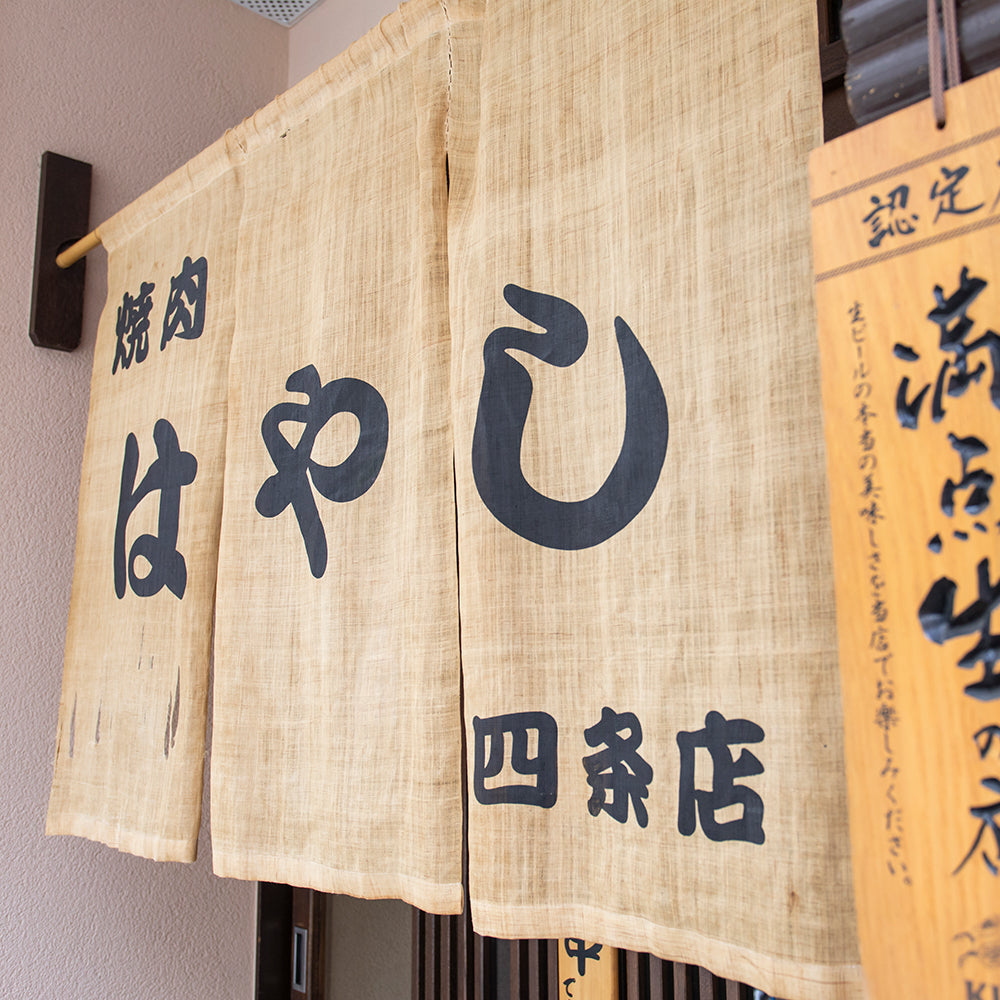 焼肉
はやし
四条店
認定
満点生の店
生ビールの本当の美味しさを当店でお楽しみください。